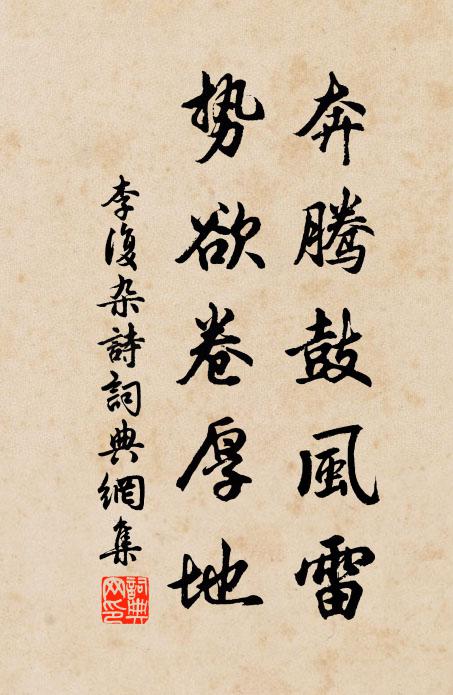 奔腾鼓風雷
势欲卷厚地
李復杂詩詞典網集
詞典網印